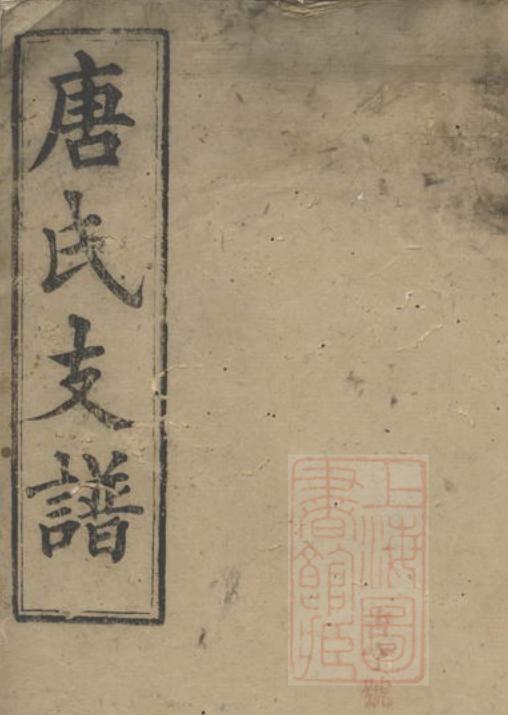 唐氏支譜
上海圖
書館藏